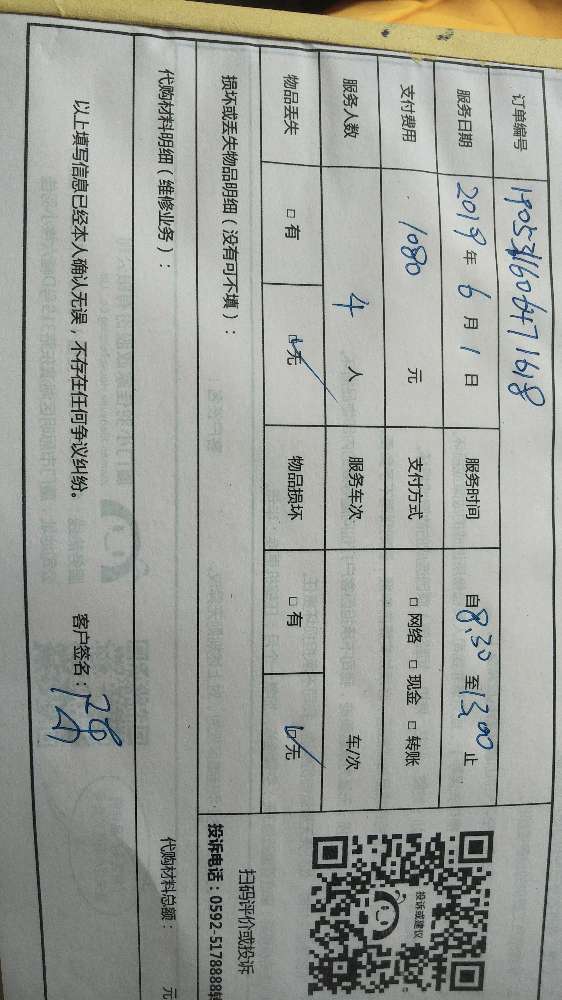 订单编号 190531606471618
服务日期 2019年6月1日 服务时间 自8.30至13.00止
支付费用 1080元 支付方式 □网络 □现金 □转账
服务人数 4人 服务车次 车/次
物品丢失 □有 ☑无 物品损坏 □有 ☑无
损坏或丢失物品明细(没有可不填):
代购材料明细(维修业务): 代购材料总额: 元
以上填写信息已经本人确认无误,不存在任何争议纠纷。 客户签名:
投诉或建议
扫码评价或投诉
投诉电话:0592-5178888转